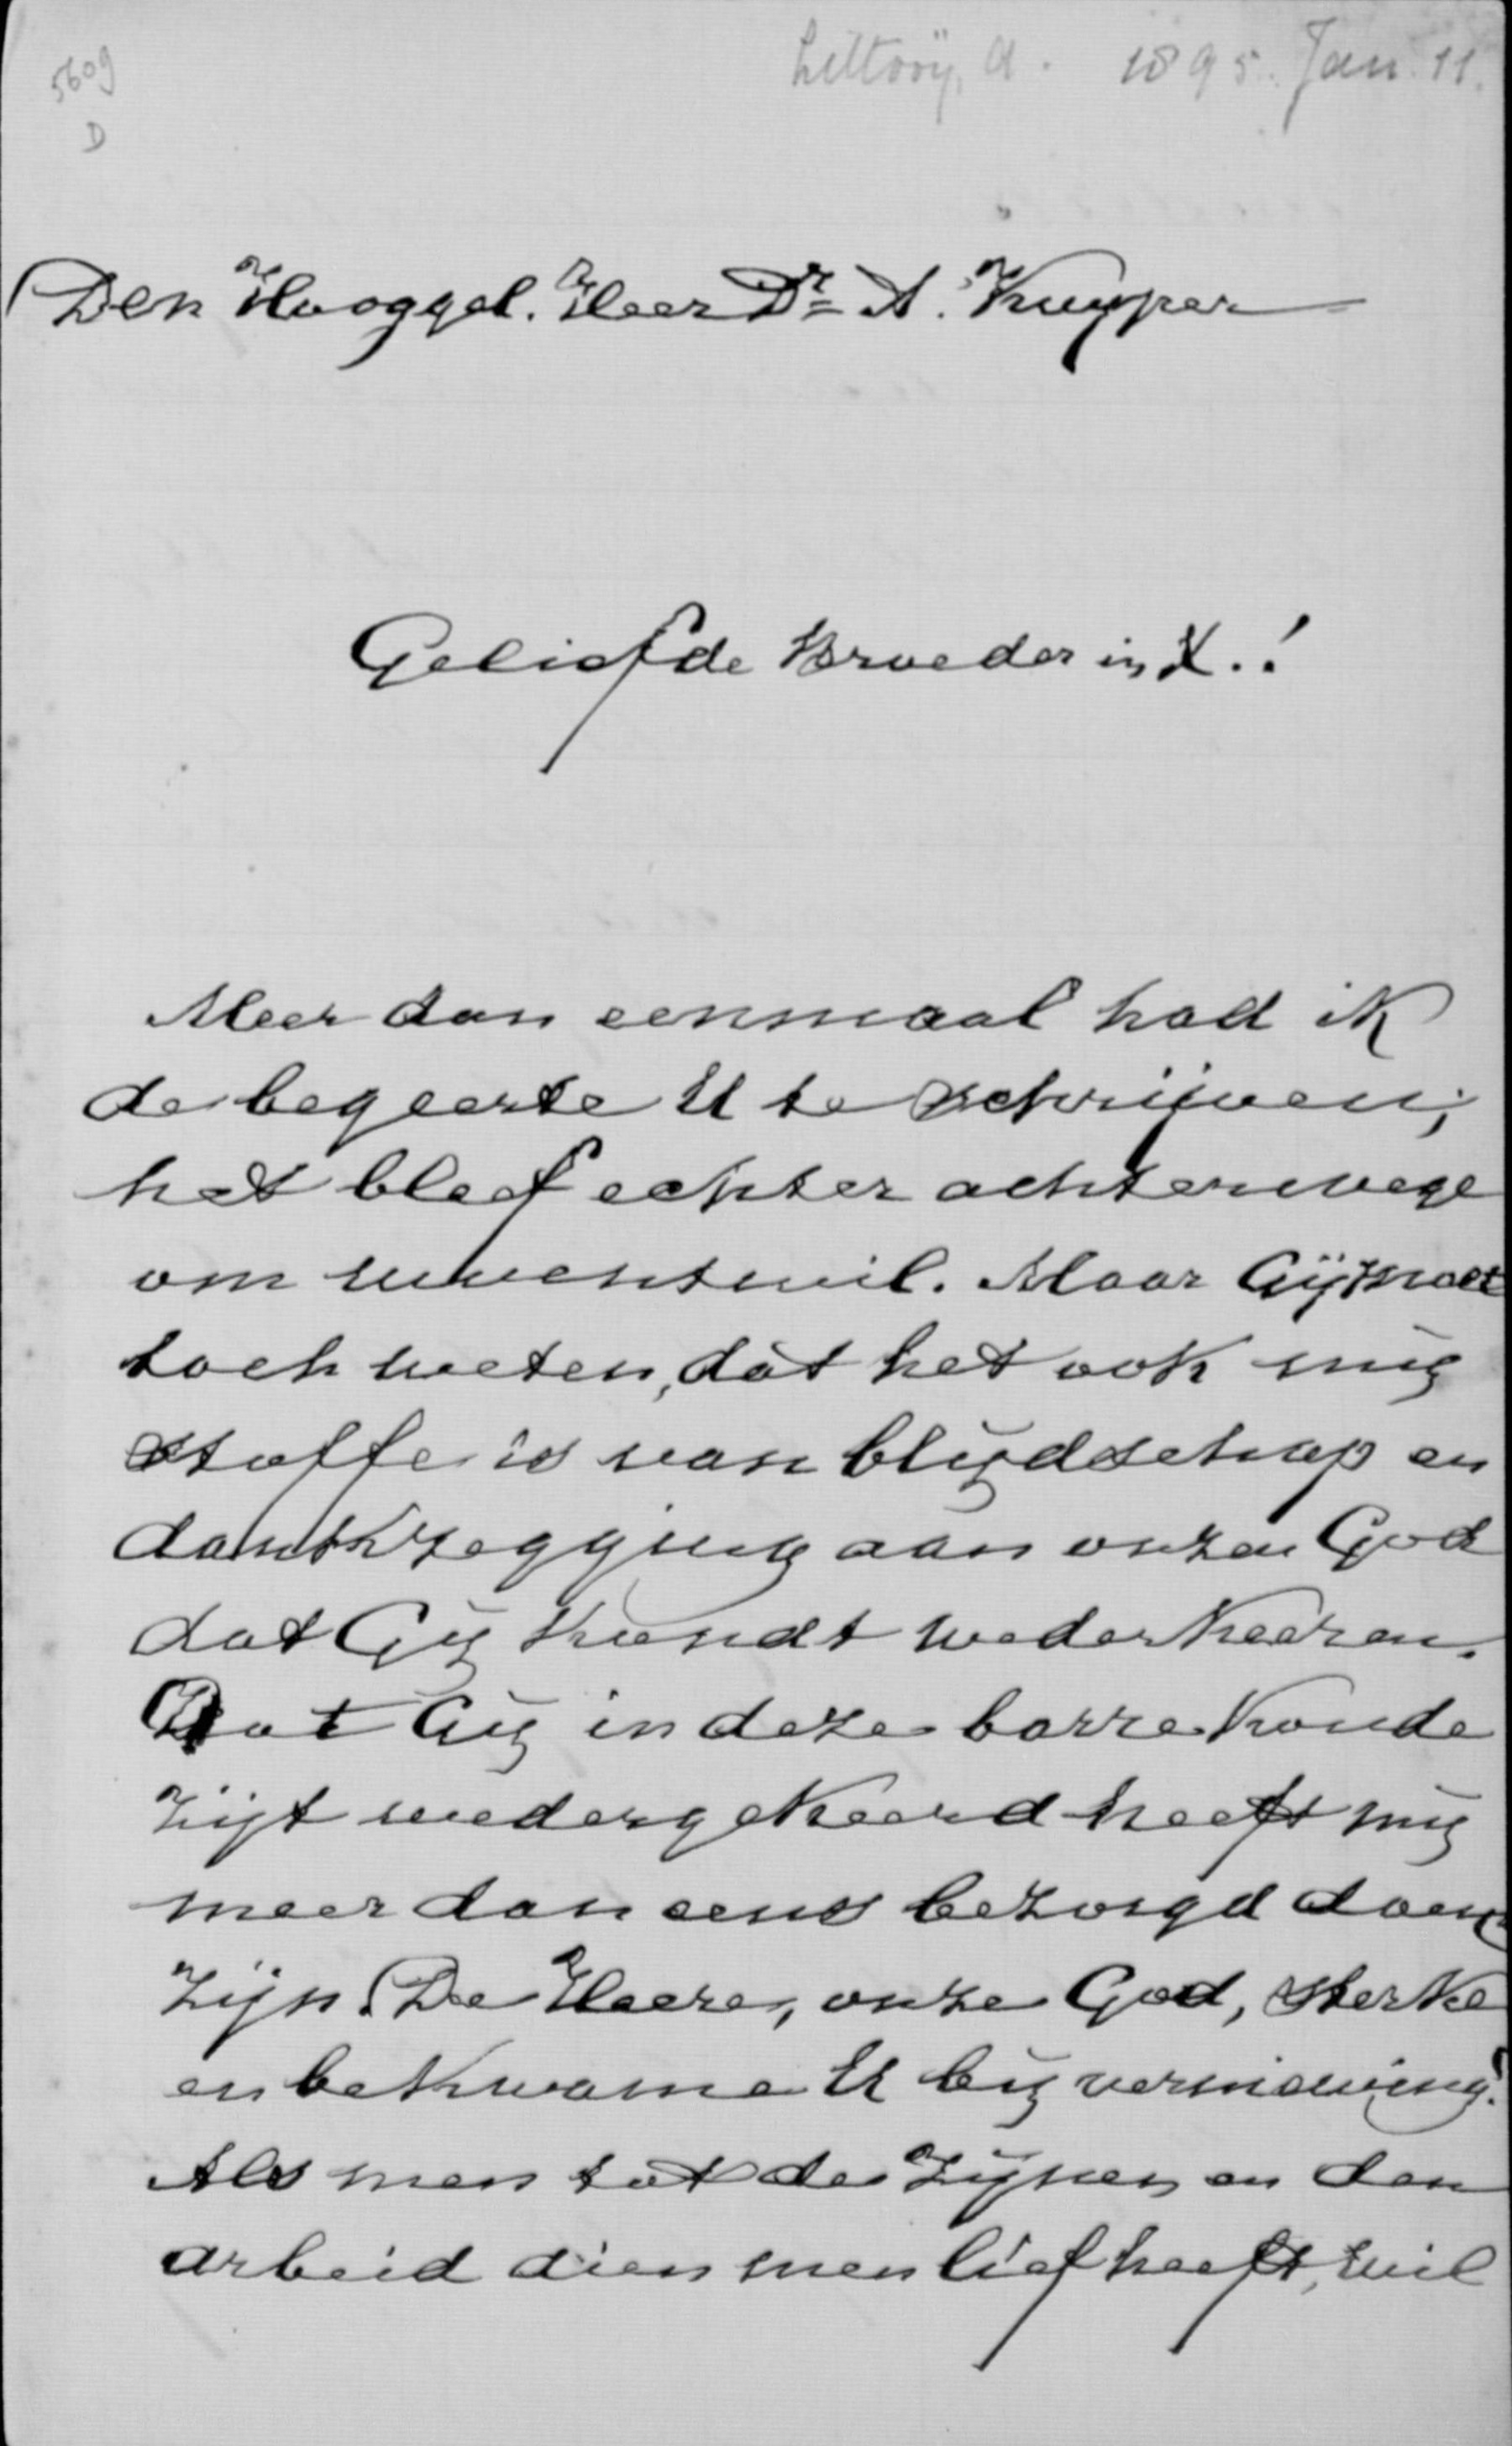 5609
D
Littooÿ, A. 1895. Jan. 11.
Den Hooggel. Heer Dr A. Kuyper
Geliefde Broeder in X.!
Meer dan eenmaal had ik
de begeerte U te schrijven;
het bleef echter achterwege
om uwentwil. Maar Gij moet
toch weten, dat het ook mij
stoffe is van blijdschap en
dankzegging aan onzen God
dat Gij kondt wederkeeren.
Dat Gij in deze barre koude
zijt wedergekeerd heeft mij
meer dan eens bezorgd doen
zijn. De Heere, onze God, sterke
en bekwame U bij vernieuwing!
Als men tot de zijnen en den
arbeid dien men lief heeft, wil